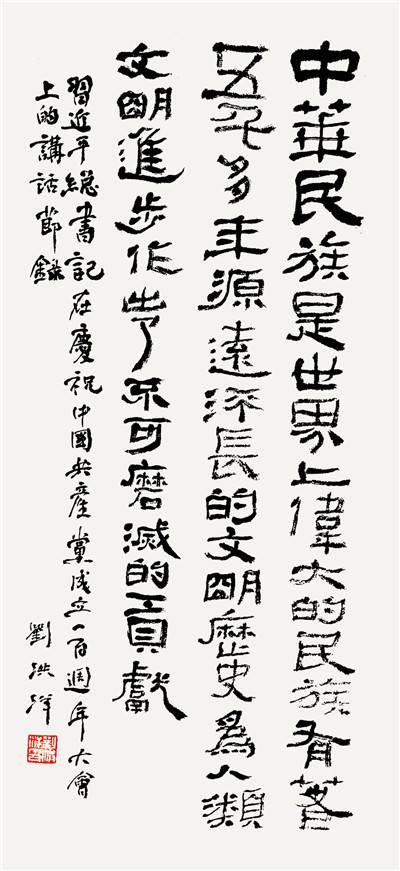 中華民族是世界上偉大的民族有著
五千多年源遠流長的文明歷史為人類
文明進步作出了不可磨滅的貢獻
習近平總書記在慶祝中國共產黨成立一百週年大會
上的講話節錄
劉洪洋